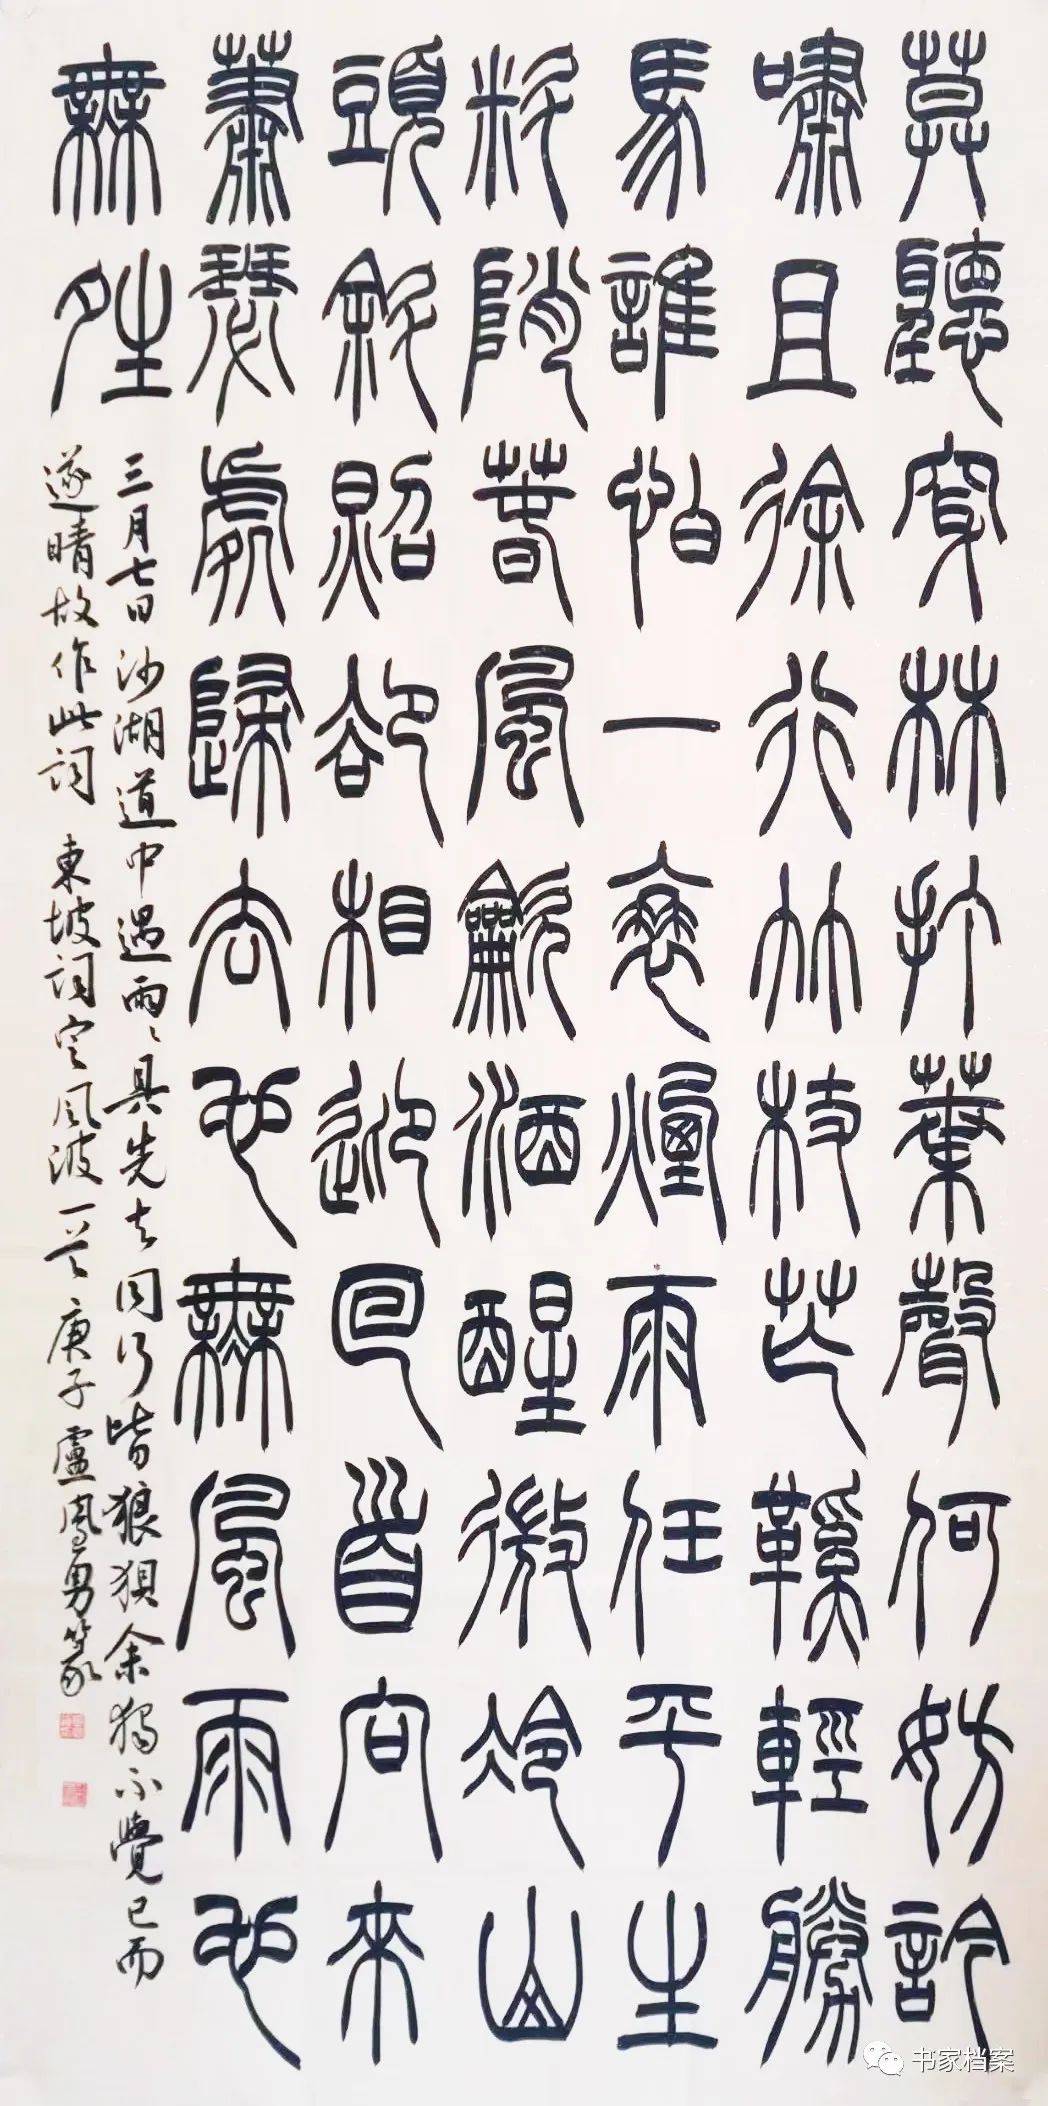 莫聽穿林打葉聲何妨訡
嘯且徐行竹杖芒鞵輕勝
馬誰怕一蓑煙雨任平生
料陗春風龡酒醒微冷山
頭斜照卻相迎回首向來
蕭瑟處歸去也無風雨也
無夝
三月七日沙湖道中遇雨〻具先去同行皆狼狽余獨不覺已而
遂晴故作此詞 東坡詞定風波一首 庚子盧鳳勇篆
书家档案